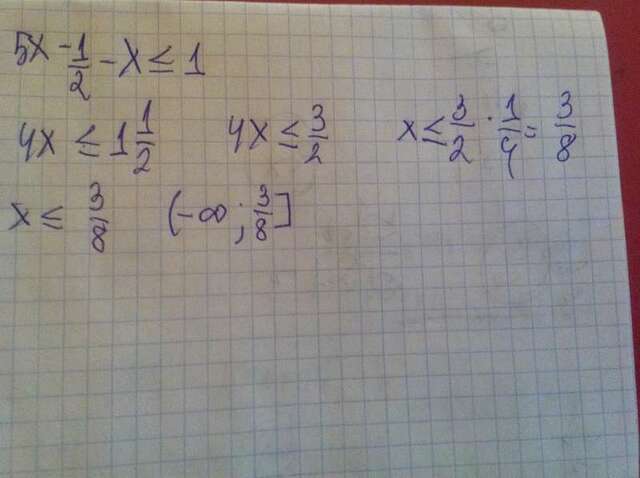 5x - 1/2 - x ≤ 1
4x ≤ 1 1/2 4x ≤ 3/2 x ≤ 3/2 · 1/4 = 3/8
x ≤ 3/8 (-∞; 3/8]